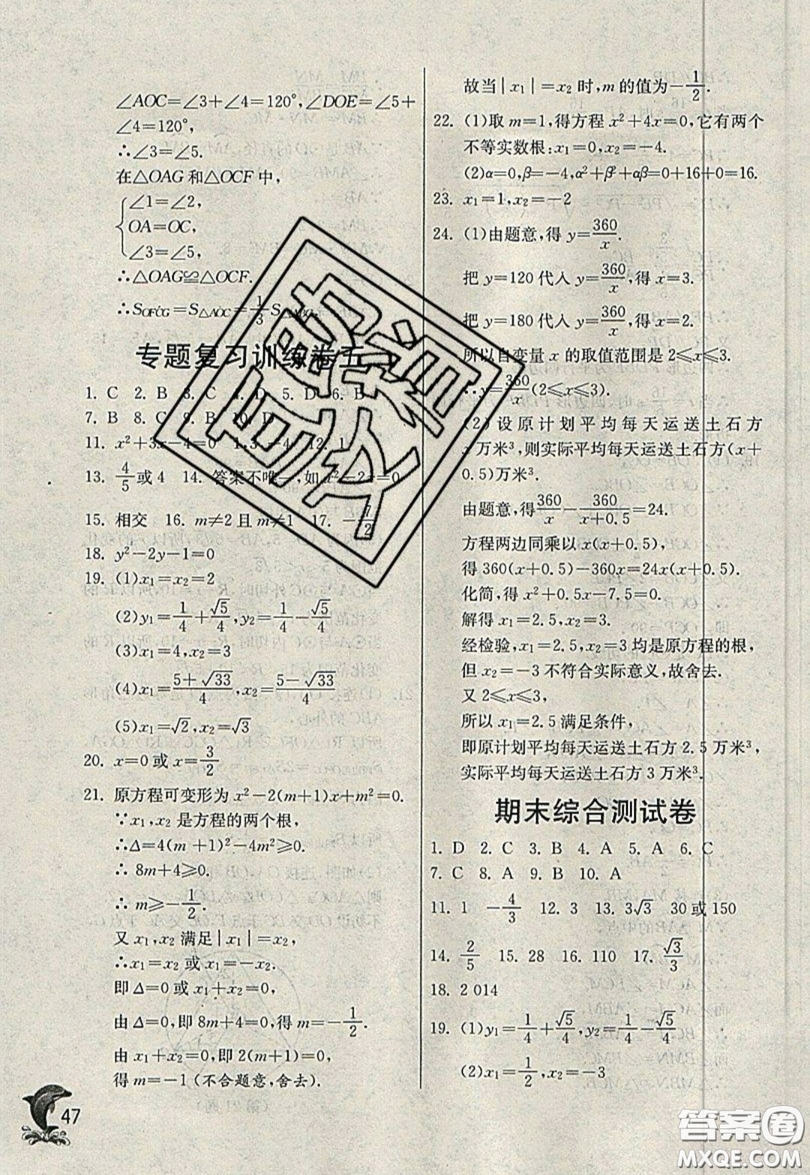 ∠AOC=∠3+∠4=120°,∠DOE=∠5+
∠4=120°,
∴∠3=∠5.
在△OAG 和△OCF 中,
∠1=∠2,
OA=OC,
∠3=∠5,
∴△OAG≌△OCF.
∴S_{OFCG}=S_{△AOC}=\frac{1}{3}S_{△
专题复习训练卷五
1. C 2. B 3. 4. D 5. D 6. B
7. B 8. C 9.
11. x²+3x-4=0 12.
13. \frac{4}{5}或4 14. 答案不唯一,如x²-2x=0
15. 相交 16. m≠2 且 m≠1 17.
18. y²-2y-1=0
19. (1)x₁=x₂=2
(2)y₁=\frac{1}{4}+\frac{\sqrt{5}}{4},y₂=\frac{1}{4}-\frac{\sqrt{5}}{4}
(3)x₁=3,x₂=\frac{4}{3}
(4)x₁=\frac{5+\sqrt{33}}{4},x₂=\frac{5-\sqrt{33}}{4}
(5)x₁=√2,x₂=√3
20. x=0 或 x=\frac{3}{2}
21. 原方程可变形为 x²-2(m+1)x+m²=0.
∵x₁,x₂ 是方程的两个根,
∴Δ=4(m+1)²-4m²≥0.
∴ 8m+4≥0.
∴ m≥-\frac{1}{2}.
又 x₁,x₂ 满足|x₁|=x₂,
∴x₁=x₂ 或 x₁=-x₂.
即 Δ=0 或 x₁+x₂=0,
由 Δ=0,即 8m+4=0,得 m=-\frac{1}{2}.
由 x₁+x₂=0,即 2(m+1)=0,
得 m=-1(不合题意,舍去).
47
故当|x₁|=x₂ 时,m 的值为-\frac{1}{2}.
22. (1)取 m=1,得方程 x²+4x=0,它有两个
不等实数根:x₁=0,x₂=-4.
(2)α=0,β=-4,α²+β²+αβ=0+16+0=16.
23. x₁=1,x₂=-2
24. (1)由题意,得 y=\frac{360}{x}.
把 y=120 代入 y=\frac{360}{x},得 x=3.
把 y=180 代入 y=\frac{360}{x},得 x=2.
所以自变量 x 的取值范围是 2≤x≤3.
∴y=\frac{360}{x}(2≤x≤3).
(2)设原计划平均每天运送土石方
x 万米³,则实际平均每天运送土石方(x+
0.5)万米³.
由题意,得\frac{360}{x}-\frac{360}{x+0.5}=24.
方程两边同乘以 x(x+0.5).
得 360(x+0.5)-360x=24x(x+0.5).
化简,得 x²+0.5x-7.5=0.
解得 x₁=2.5,x₂=-3.
经检验,x₁=2.5,x₂=-3 均是原方程的根,
但 x₂=-3 不符合实际意义,故舍去.
又 2≤x≤3,
所以 x₁=2.5 满足条件,
即原计划平均每天运送土石方 2.5 万米³,
实际平均每天运送土石方 3 万米³.
期末综合测试卷
1. D 2. C 3. B 4. A 5. A 6. C
7. C 8. A 9. B 10. A
11. 1 -\frac{4}{3} 12. 3 13. 3√3 30 或 150
14. \frac{2}{5} 15. 28 16. 110 17. \frac{\sqrt{3}}{3}
18. 2 014
19. (1)y₁=\frac{1}{4}+\frac{\sqrt{5}}{4},y₂=\frac{1}{4}-\frac{\sqrt{5}}{4}
(2)x₁=-\frac{1}{2},x₂=3
答案圈
MXQE.COM